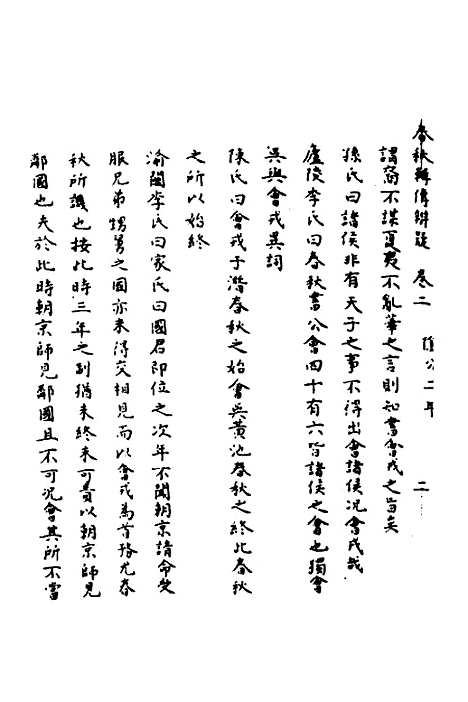 春秋辯傳辨疑 卷二 隱公二年 二
謂裔不謀夏夷不亂華之言則知書會戎之旨矣
孫氏曰諸侯非有天子之事不得出會諸侯况會戎哉
廬陵李氏曰春秋書公會四十有六皆諸侯之會也獨會
吳與會戎異詞
陳氏曰會戎于潛春秋之始會吳黃池春秋之終此春秋
之所以始終
渝關李氏曰家氏曰國君即位之次年不聞朝京請命受
服兄弟甥舅之國亦未得交相見而以會戎為首務尤春
秋所譏也按此時三年之制猶未終未可責以朝京師見
鄰國也夫於此時朝京師見鄰國且不可况會其所不當